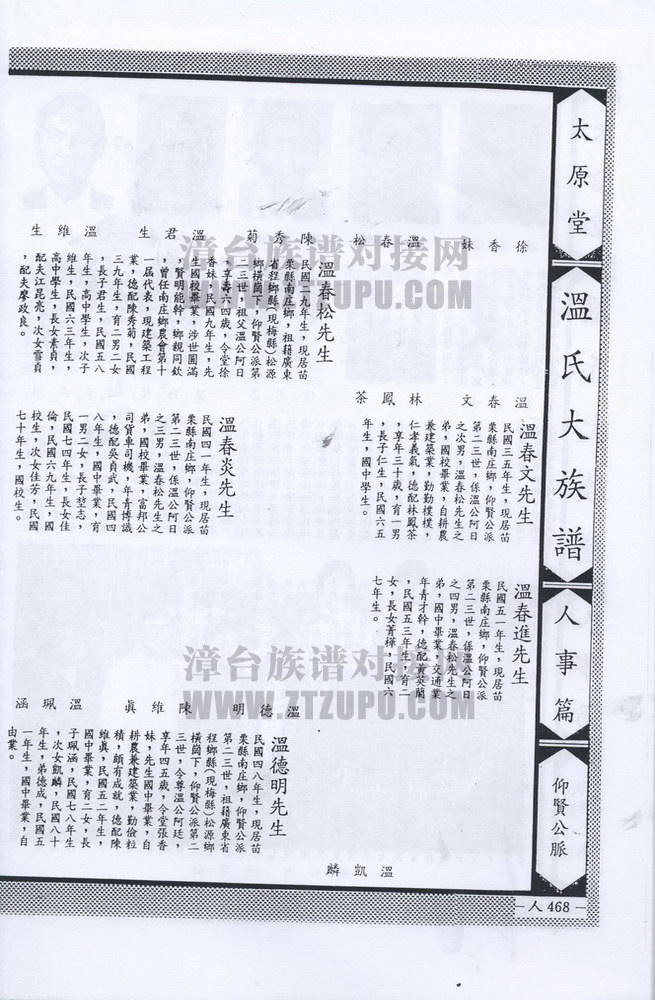 太原堂
溫氏大族譜
人事篇
仰賢公脈
徐香妹
溫春松
陳秀菊
溫君生
溫維生
溫春松先生
民國二九年生，現居苗
栗縣南庄鄉，祖籍廣東
省程鄉縣(現梅縣)松源
鄉橫崗下，仰賢公派第
二三世，祖父溫公阿日
，享壽六四歲，令堂徐
香妹，民國九年生，先
生國校畢業，涉世圓滿
，賢明能幹，鄉親同欽
，曾任南庄鄉農會第十
一屆代表，現建築工程
業，德配陳秀菊，民國
三九年生，育二男二女
，長子君生，民國五八
年生，高中學生，次子
維生，民國六三年生，
高中學生，長女素貞，
配夫江昆亮，次女雪貞
，配夫廖政良。
溫春文
林鳳茶
溫春文先生
民國三五年生，現居苗
栗縣南庄鄉，仰賢公派
第二三世，係溫公阿日
之次男，溫春松先生之
弟，國校畢業，自耕農
兼建築業，勤勤樸樸，
仁孝義氣，德配林鳳茶
，享年三十歲，育一男
，長子仁生，民國六五
年生，國中學生。
溫春炎先生
民國四一年生，現居苗
栗縣南庄鄉，仰賢公派
第二三世，係溫公阿日
之三男，溫春松先生之
弟，國校畢業，富邦公
司貨車司機，年青博識
，德配吳貞武，民國四
八年生，國中畢業，育
一男二女，長子堃志，
民國七四年生，長女佳
倫，民國六九年生，國
校生，次女佳芳，民國
七十年生，國校生。
溫春進先生
民國五一年生，現居苗
栗縣南庄鄉，仰賢公派
第二三世，係溫公阿日
之四男，溫春松先生之
弟，國中畢業，交通業
年青才幹，德配黃英蘭
，民國五三年生，育二
女，長女菁樺，民國六
七年生。
溫德明
陳維眞
溫珮涵
溫德明先生
民國四八年生，現居苗
栗縣南庄鄉，仰賢公派
第二三世，祖籍廣東省
程鄉縣(現梅縣)松源鄉
橫崗下，仰賢公派第二
三世，令尊溫公阿廷，
享年四五歲，令堂張香
妹，先生國中畢業，自
耕農兼建築業，勤儉粒
積，頗有成就，德配陳
維眞，民國五二年生，
國中畢業，育二女，長
子珮涵，民國七八年生
，次女凱麟，民國八十
年生，弟德成，民國五
一年生，國中畢業，自
由業。
溫凱麟
—人468—
漳台族谱对接网
WWW.ZTZUPU.COM
漳台族谱对接网
WWW.ZTZUPU.COM